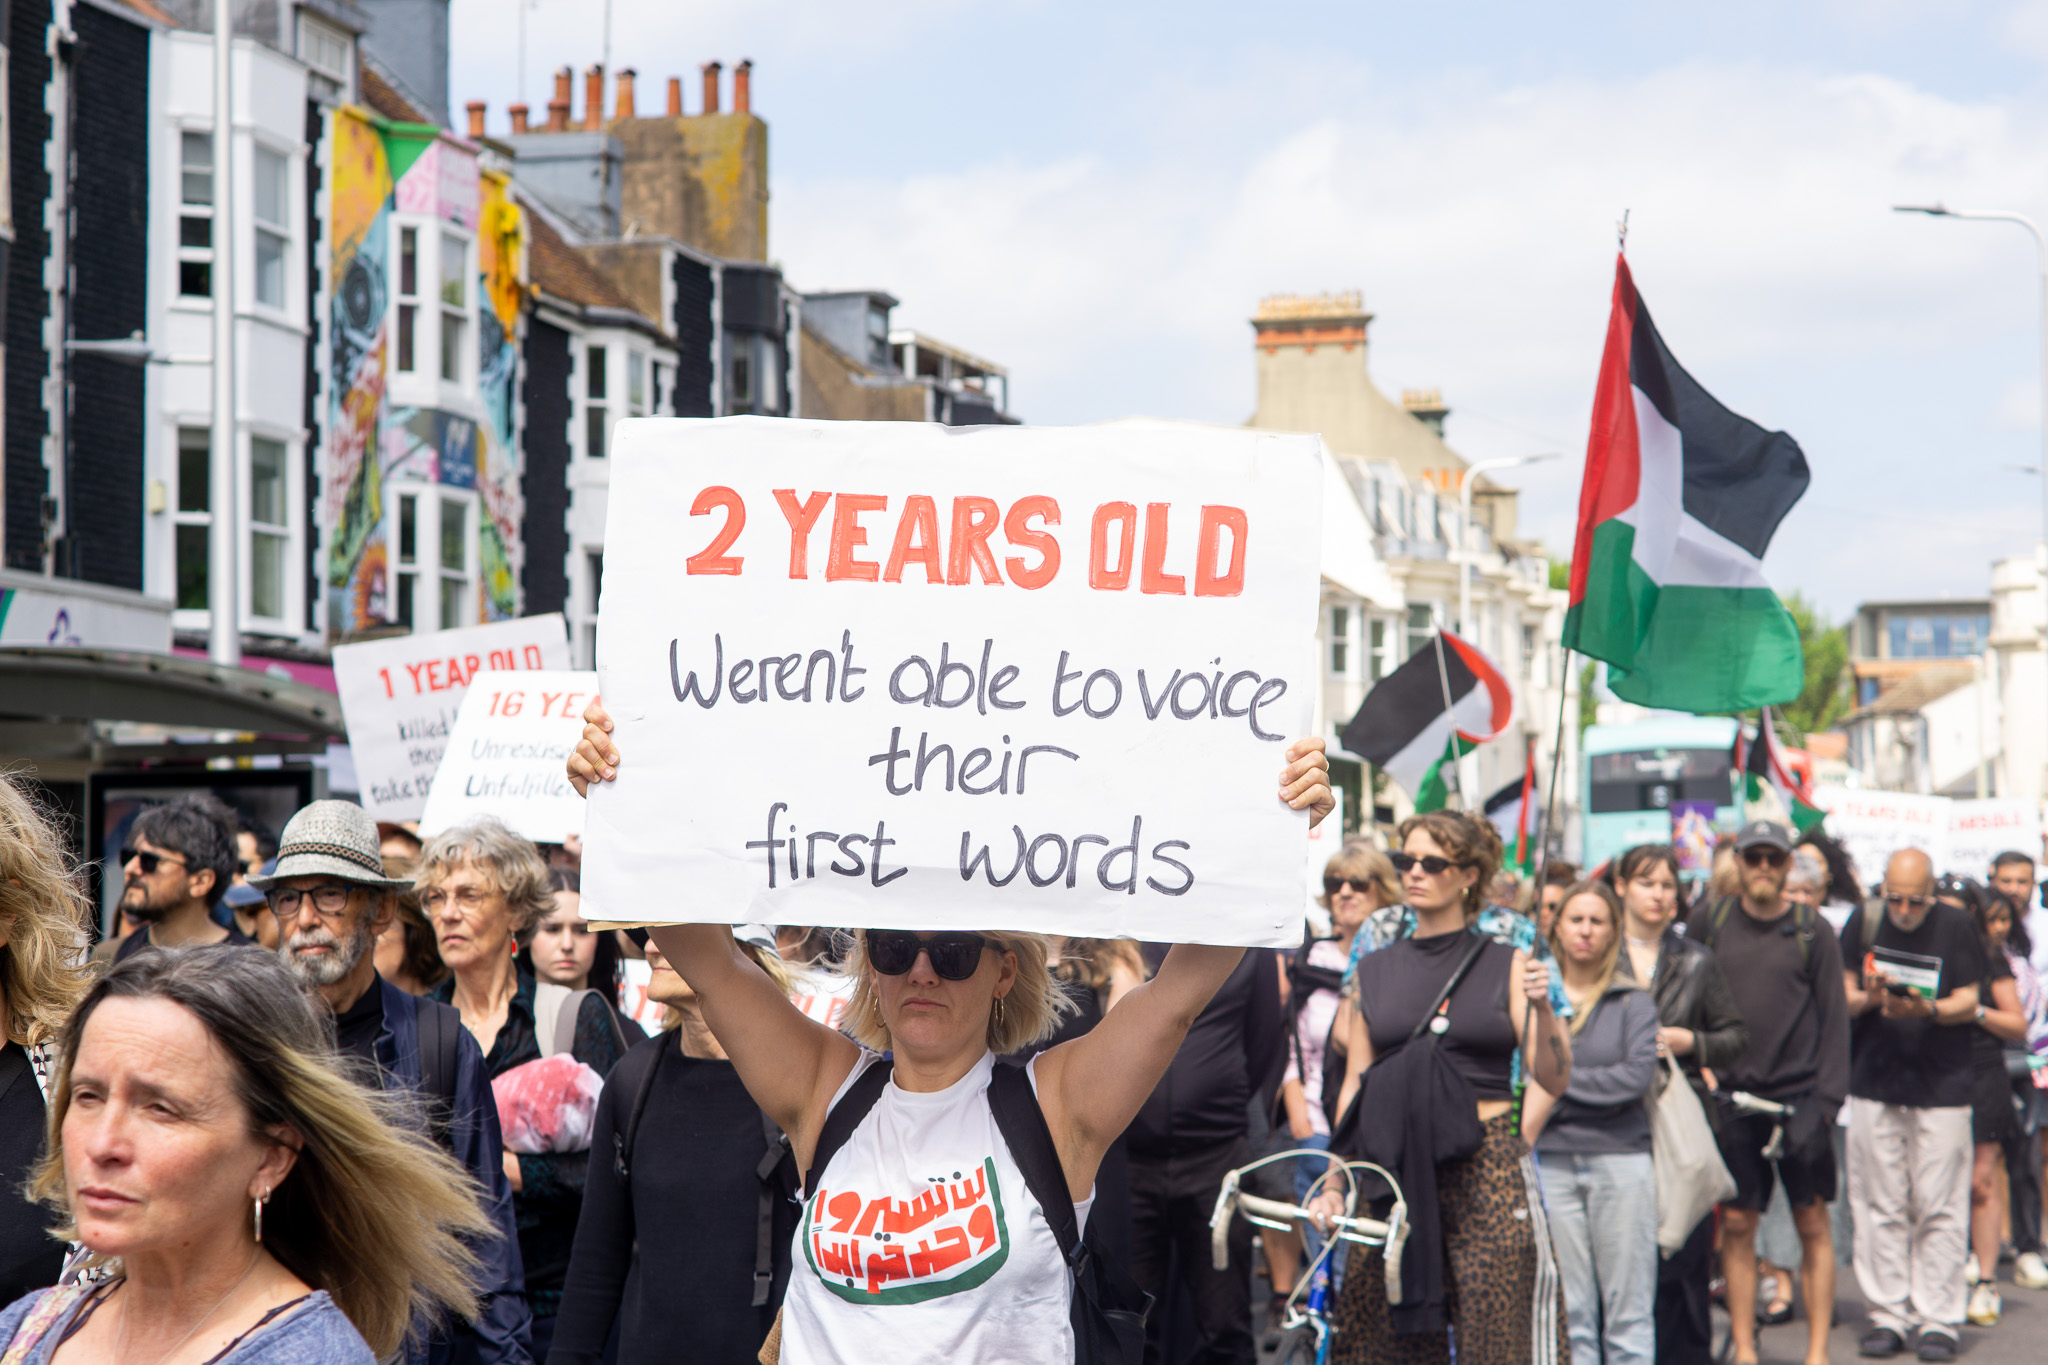 2 YEARS OLD
Weren't able to voice
their
first words
1 YEAR OLD
killed
16 YE
Unrealise
Unfulfille
لن تسيروا
وحدكم ابدا
YEARS OLD